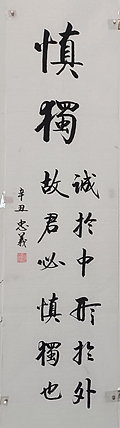 慎獨
誠於中形於外
故君必慎獨也
辛丑忠義